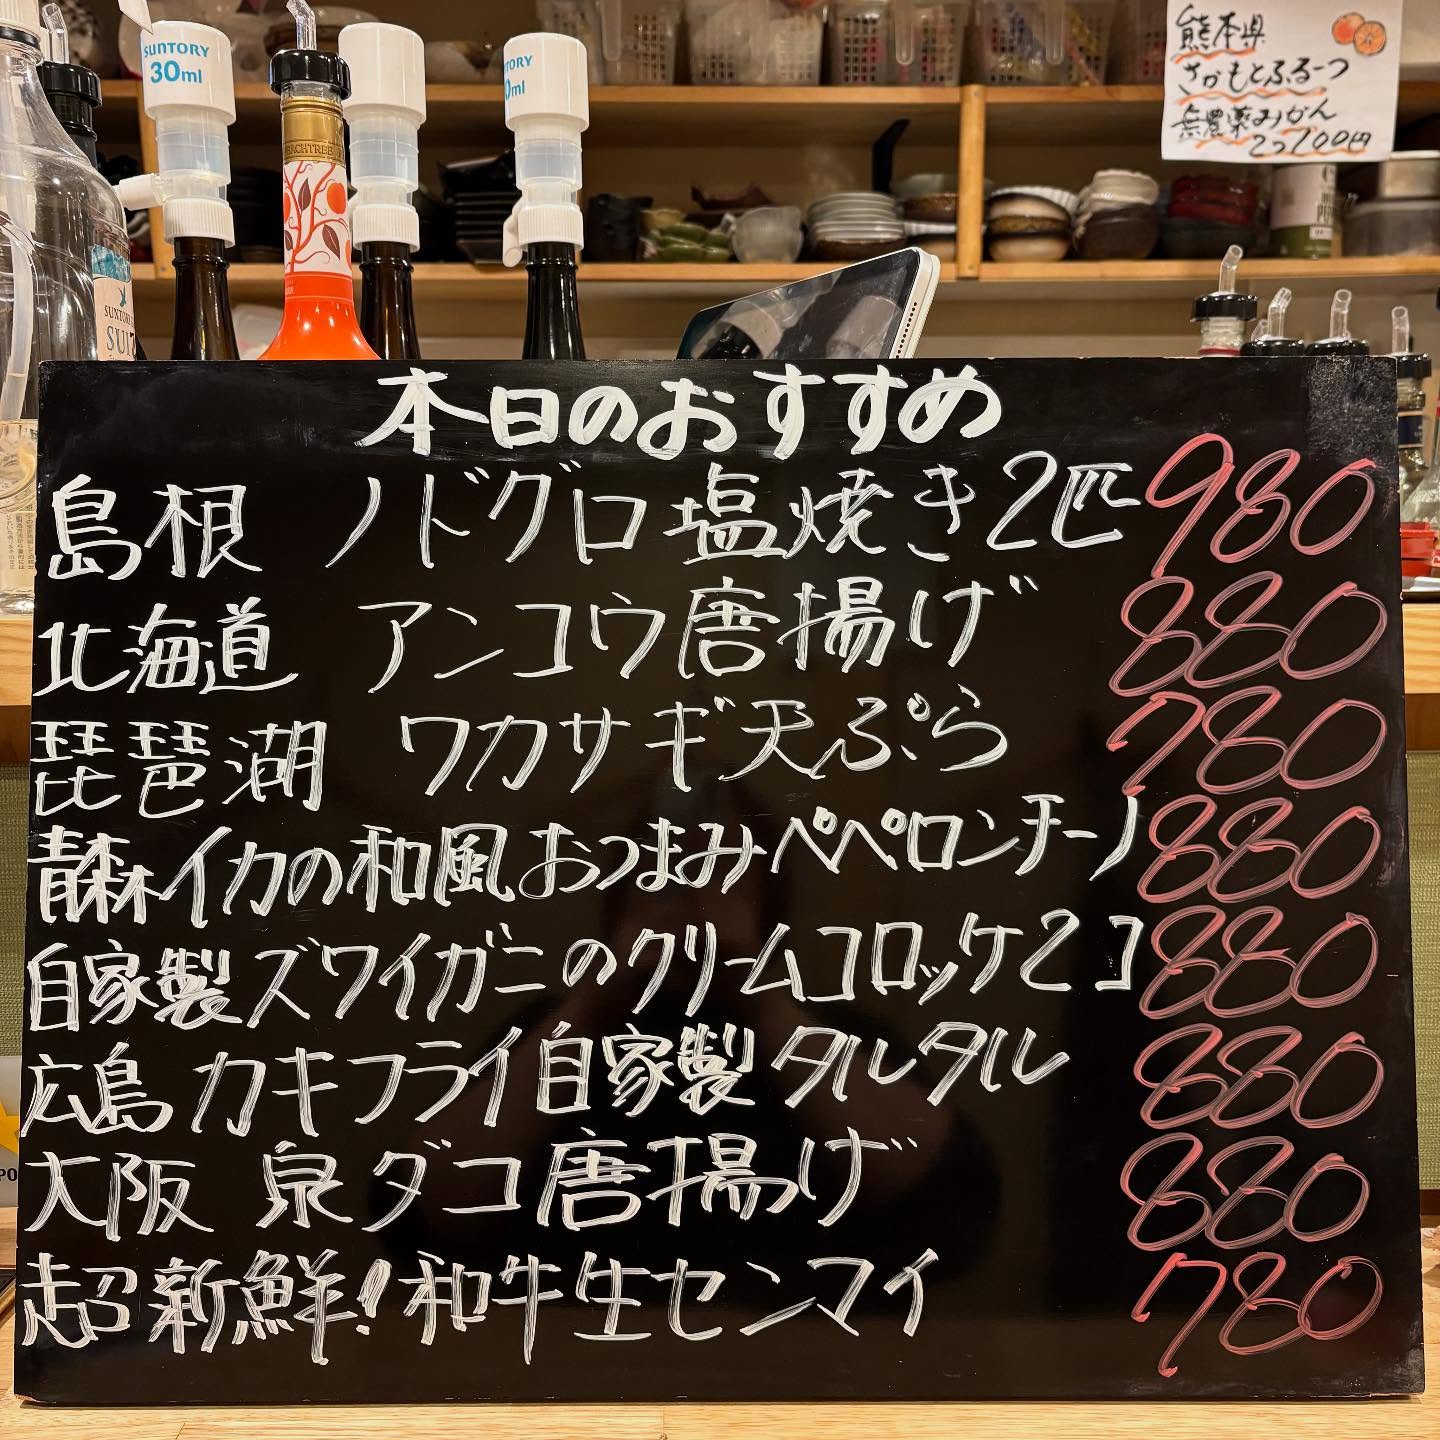 SUNTORY
30ml
TORY
0ml
熊本県
さかもとふるーつ
無農薬みかん
2つ100円
本日のおすすめ
島根 ノドグロ塩焼き2匹 980
北海道 アンコウ唐揚げ 880
琵琶湖 ワカサギ天ぷら 780
青森イカの和風おつまみペペロンチーノ 880
自家製ズワイガニのクリームコロッケ2コ 880
広島 カキフライ自家製タルタル 880
大阪 泉ダコ唐揚げ 880
超新鮮!和牛生センマイ 780